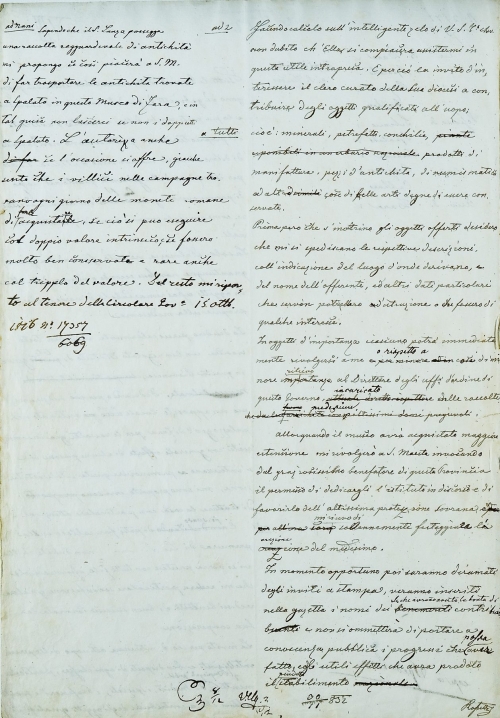 ad Nani Sapendo che il S. Lanza possegge
una raccolta ragguardevole di antichità
mi propongo se così piacerà a S. M.
di far trasportare le antichità trovate
a Spalato in questo Museo di Zara, e in
tal guisa non lasciarci se non i doppi
a Spalato. L'autorizza anche
se l'occasione ci offre, giacchè
sento che i villici nelle campagne tro-
vano ogni giorno delle monete romane
di farle acquistare, se ciò si può seguire
col doppio valore intrinseco, se fossero
molto ben conservate e rare anche
col tripplo del valore. Del resto mi ripor-
to al tenore della Circolare Gov.e 15 Ott.
1826 N.o 17357
6069
ad 2
a tutti
Facendo calcolo sull'intelligente zelo di V. S.
non dubito ch'Ella si compiacerà assistermi in
questa utile intrapresa. E perciò la invito d'in-
teressare il clero curato della sua diocesi a con-
tribuire degli oggetti qualificati all'uopo;
cioè: minerali, petrefatti, conchilie,
esponibili in un erbario nazionale prodotti di
manifatture, pezzi d'antichità, di numismatica
ed altre cose di belle arti degne di essere con-
servate.
Prima però che s'inoltrino gli oggetti offerti desidero
che mi si spediscano le rispettive descrizioni,
coll'indicazione del luogo d'onde derivano, e
del nome dell'offerente, ed altri dati particolari
che servon potessero ad istruzione o che fossero di
qualche interesse.
In oggetti d'importanza ciascuno potrà immediata-
mente rivolgersi a me o rispetto a cose di mi-
nore rilievo importanza al Direttore degli uffi d'ordine di
questo Governo, incaricato delle raccolte
medesime.
Allorquando il museo avrà acquistato maggiore
estensione mi rivolgerò a S. Maestà invocando
dal graziosissimo benefatore di questa Provincia
il permesso di dedicargli l'istituto in discorso e di
favorirlo dell'altissima protezione sovrana,
solennemente festeggiare la
erezione del medesimo.
In momento opportuno poi saranno diramati
degli inviti a stampa, verranno inseriti
nella gazzetta i nomi dei contri-
buenti e non si ometterà di portare a
conoscenza pubblica i progressi che
fatto, e gli utili effetti che avrà prodotto
il stabilimento nazionale
832